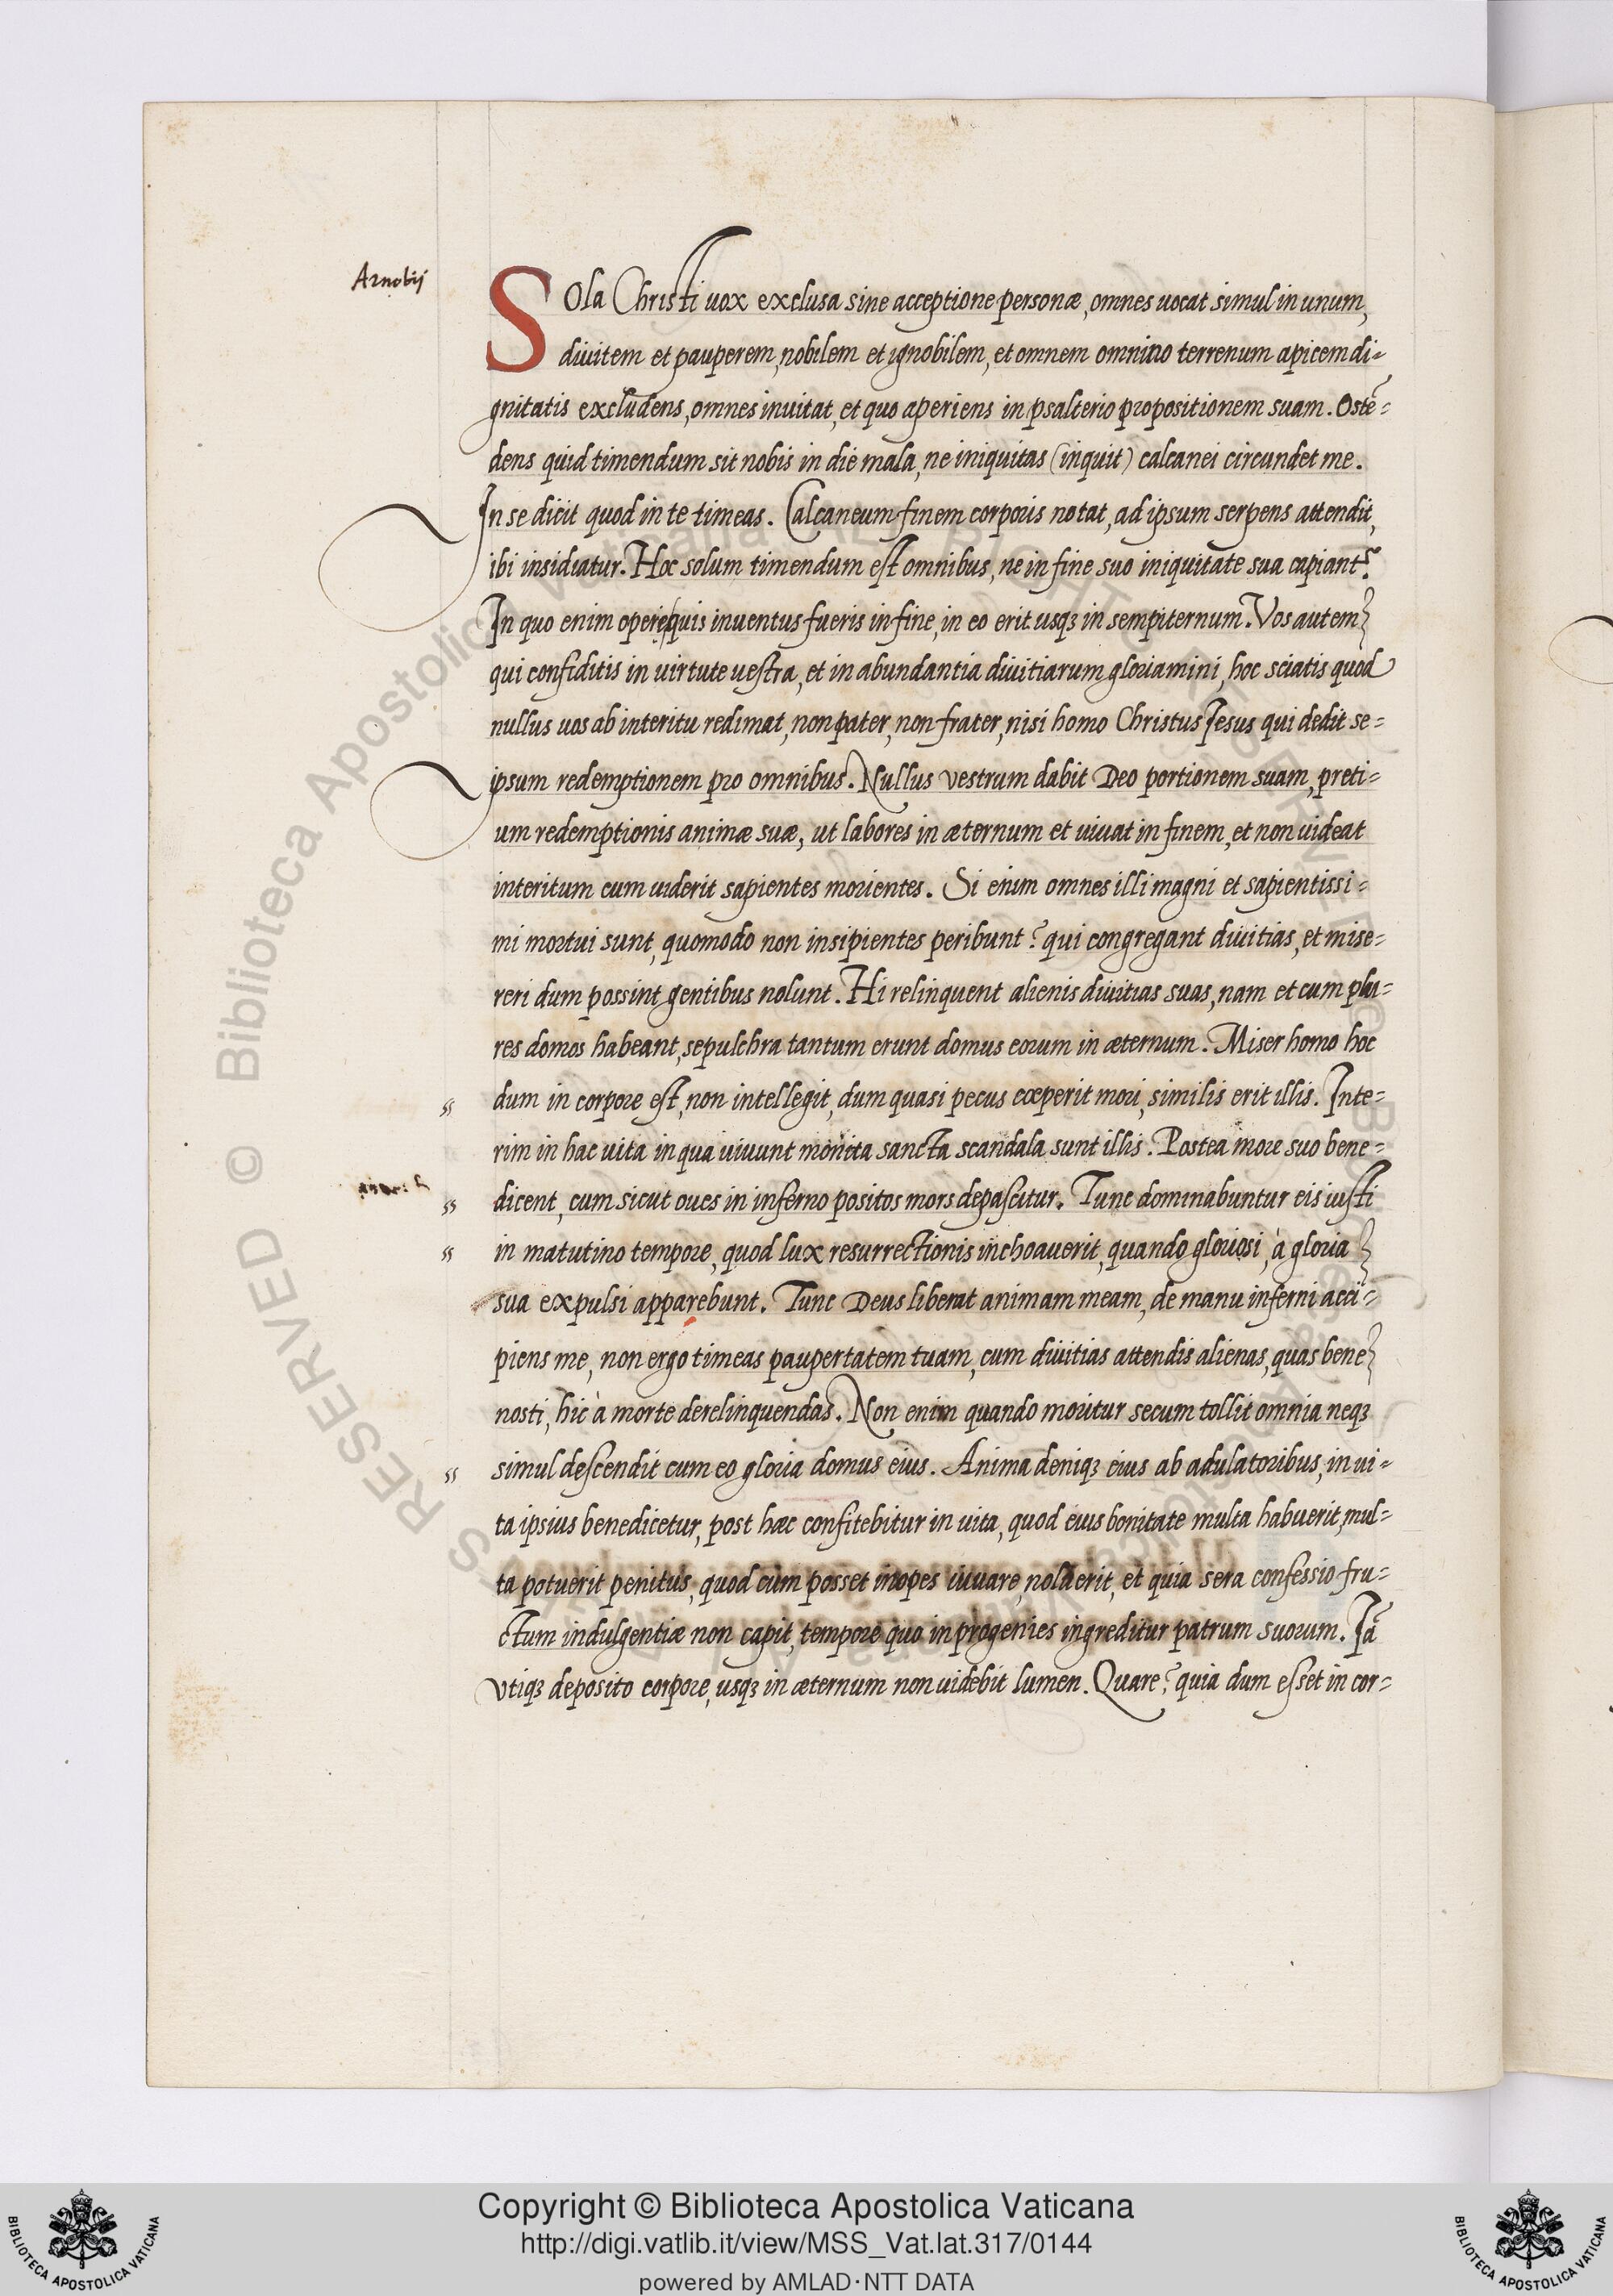 Arnobij
Sola Christi uox exclusa sine acceptione personæ, omnes uocat simul in unum,
diuitem et pauperem, nobilem et ignobilem, et omnem omnino terrenum apicem di=
gnitatis excludens, omnes inuitat, et quo aperiens in psalterio propositionem suam. Ostē=
dens quid timendum sit nobis in die mala, ne iniquitas (inquit) calcanei circundet me.
In se dicit quod in te timeas. Calcaneum finem corporis notat, ad ipsum serpens attendit,
ibi insidiatur. Hoc solum timendum est omnibus, ne in fine suo iniquitate sua capiantr.
In quo enim opere quis inuentus fueris in fine, in eo erit usqꝫ in sempiternum. Vos autem
qui confiditis in uirtute uestra, et in abundantia diuitiarum gloriamini, hoc sciatis quod
nullus uos ab interitu redimat, non pater, non frater, nisi homo Christus Jesus qui dedit se=
ipsum redemptionem pro omnibus. Nullus vestrum dabit Deo portionem suam, preti=
um redemptionis animæ suæ, ut labores in æternum et uiuat in finem, et non uideat
interitum cum uiderit sapientes morientes. Si enim omnes illi magni et sapientissi=
mi mortui sunt, quomodo non insipientes peribunt? qui congregant diuitias, et mise=
reri dum possint gentibus nolunt. Hi relinquent alienis diuitias suas, nam et cum plu=
res domos habeant, sepulchra tantum erunt domus eorum in æternum. Miser homo hoc
dum in corpore est, non intellegit, dum quasi pecus cœperit mori, similis erit illis. Inte=
rim in hac uita in qua uiuunt monita sancta scandala sunt illis. Postea more suo bene=
dicent, cum sicut oues in inferno positos mors depascitur. Tunc dominabuntur eis iusti
in matutino tempore, quod lux resurrectionis inchoauerit, quando gloriosi, à gloria
sua expulsi apparebunt. Tunc Deus liberat animam meam, de manu inferni acci=
piens me, non ergo timeas paupertatem tuam, cum diuitias attendis alienas, quas bene
nosti, hic à morte derelinquendas. Non enim quando moritur secum tollit omnia neqꝫ
simul descendit cum eo gloria domus eius. Anima deniqꝫ eius ab adulatoribus, in ui=
ta ipsius benedicetur, post hæc confitebitur in uita, quod eius bonitate multa habuerit, mul=
ta potuerit penitus, quod cum posset inopes iuuare, noluerit, et quia sera confessio fru=
ctum indulgentiæ non capit, tempore quo in progenies ingreditur patrum suorum. Iā
vtiqꝫ deposito corpore, usqꝫ in æternum non uidebit lumen. Quare? quia dum esset in cor=
Copyright © Biblioteca Apostolica Vaticana
http://digi.vatlib.it/view/MSS_Vat.lat.317/0144
powered by AMLAD·NTT DATA
BIBLIOTECA APOSTOLICA VATICANA
BIBLIOTECA APOSTOLICA VATICANA